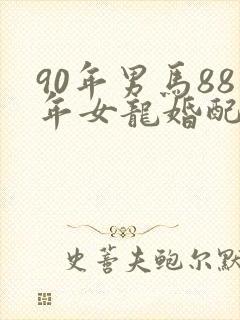 90年男馬88
年女龍婚配
史蒈夫鲍尔默